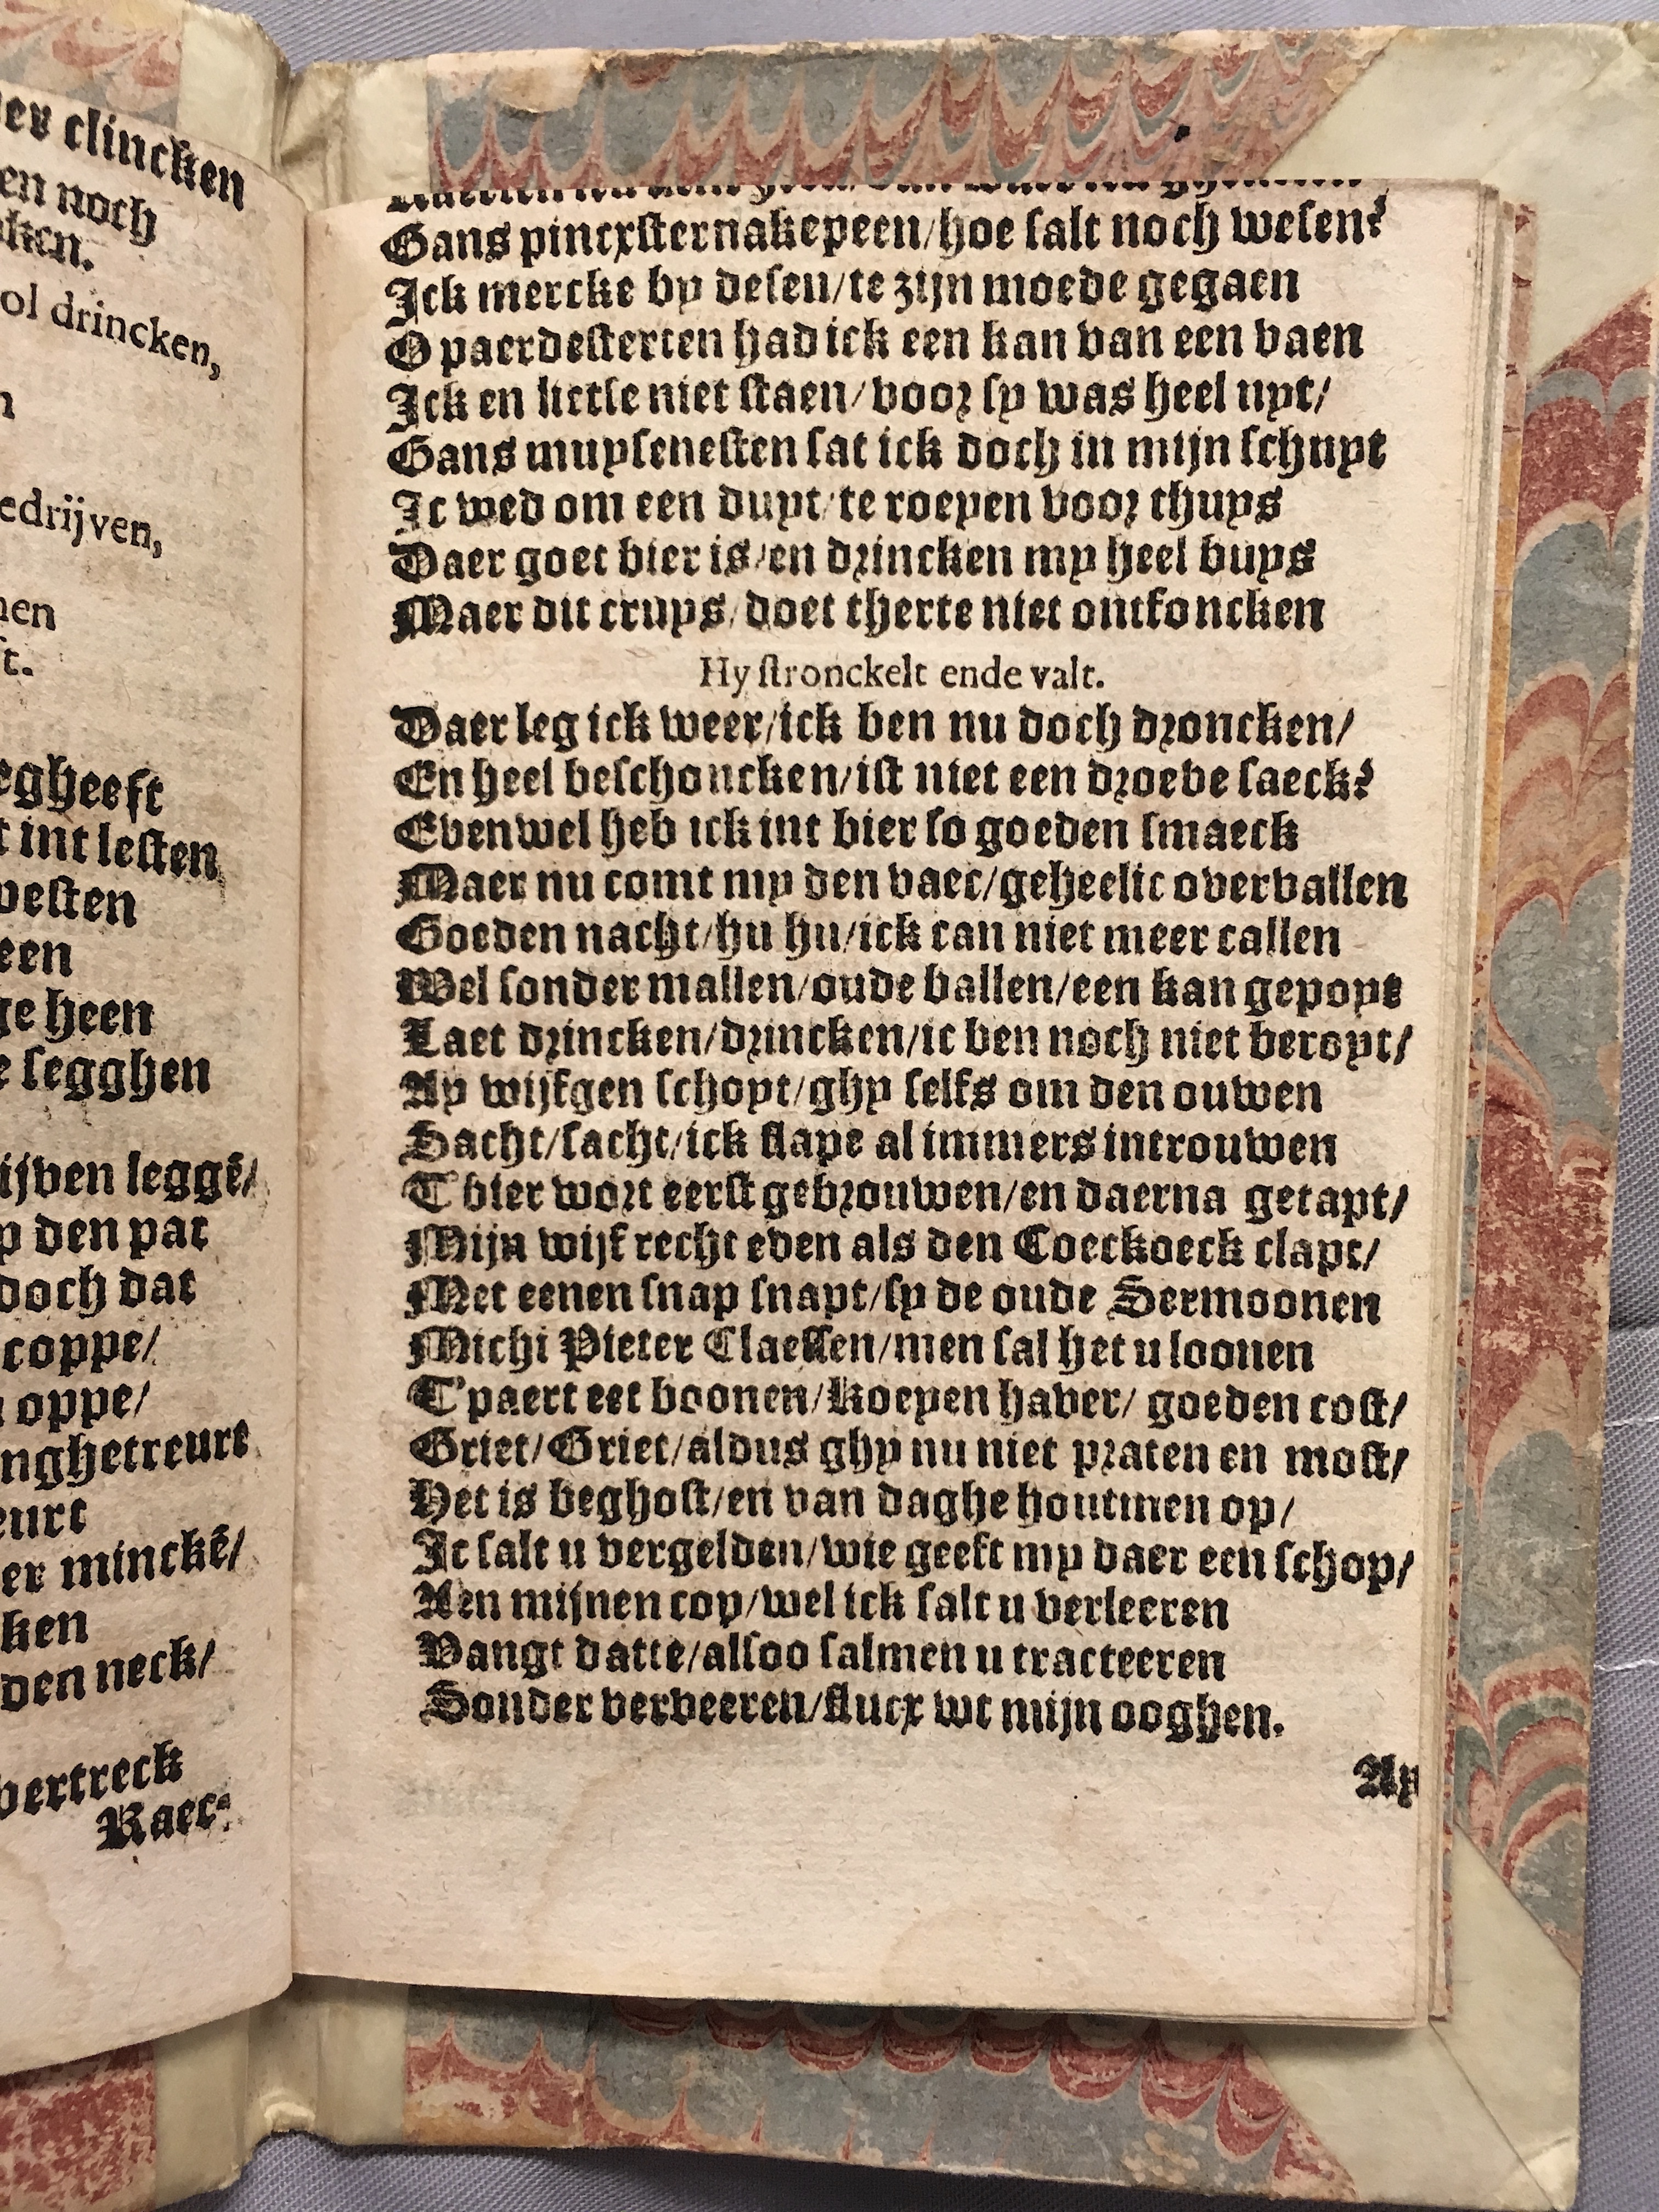 er clincken
en noch
ol drincken,
edrijven,
egheeft
int lesten
een
heen
segghen
ijven leggē/
den pat
doch dat
coppe/
oppe/
nghetreurt
er minckē/
den neck/
vertreck
Raec-
Gans pincxsternakepeen/hoe salt noch wesen?
Ick mercke by desen/te zijn moede gegaen
O paerdesterten had ick een kan van een vaen
Ick en lietse niet staen/voor sy was heel uyt/
Gans muysenesten sat ick doch in mijn schuyt
Ic wed om een duyt/te roeyen voor thuys
Daer goet bier is/en drincken my heel buys
Maer dit cruys/doet therte niet ontfoncken
Hy stronckelt ende valt.
Daer leg ick weer/ick ben nu doch droncken/
En heel beschoncken/ist niet een droeve saeck?
Evenwel heb ick int bier so goeden smaeck
Maer nu comt my den vaec/geheelic overvallen
Goeden nacht/hu hu/ick can niet meer callen
Wel sonder mallen/oude ballen/een kan gepoyt
Laet drincken/drincken/ic ben noch niet beroyt/
Ay wijfgen schoyt/ghy selfs om den ouwen
Sacht/sacht/ick slape al immers introuwen
T bier wort eerst gebrouwen/en daerna getapt/
Mijn wijf recht even als den Coeckoeck clapt/
Met eenen snap snapt/sy de oude Sermoonen
Michi Pieter Claessen/men sal het u loonen
T'paert eet boonen/koeyen haver/ goeden cost/
Griet/Griet/aldus ghy nu niet praten en most/
Het is beghost/en van daghe houtmen op/
Ic salt u vergelden/wie geeft my daer een schop/
Aen mijnen cop/wel ick salt u verleeren
Vangt datte/alsoo salmen u tracteeren
Sonder verveeren/flucx wt mijn ooghen.
Ay